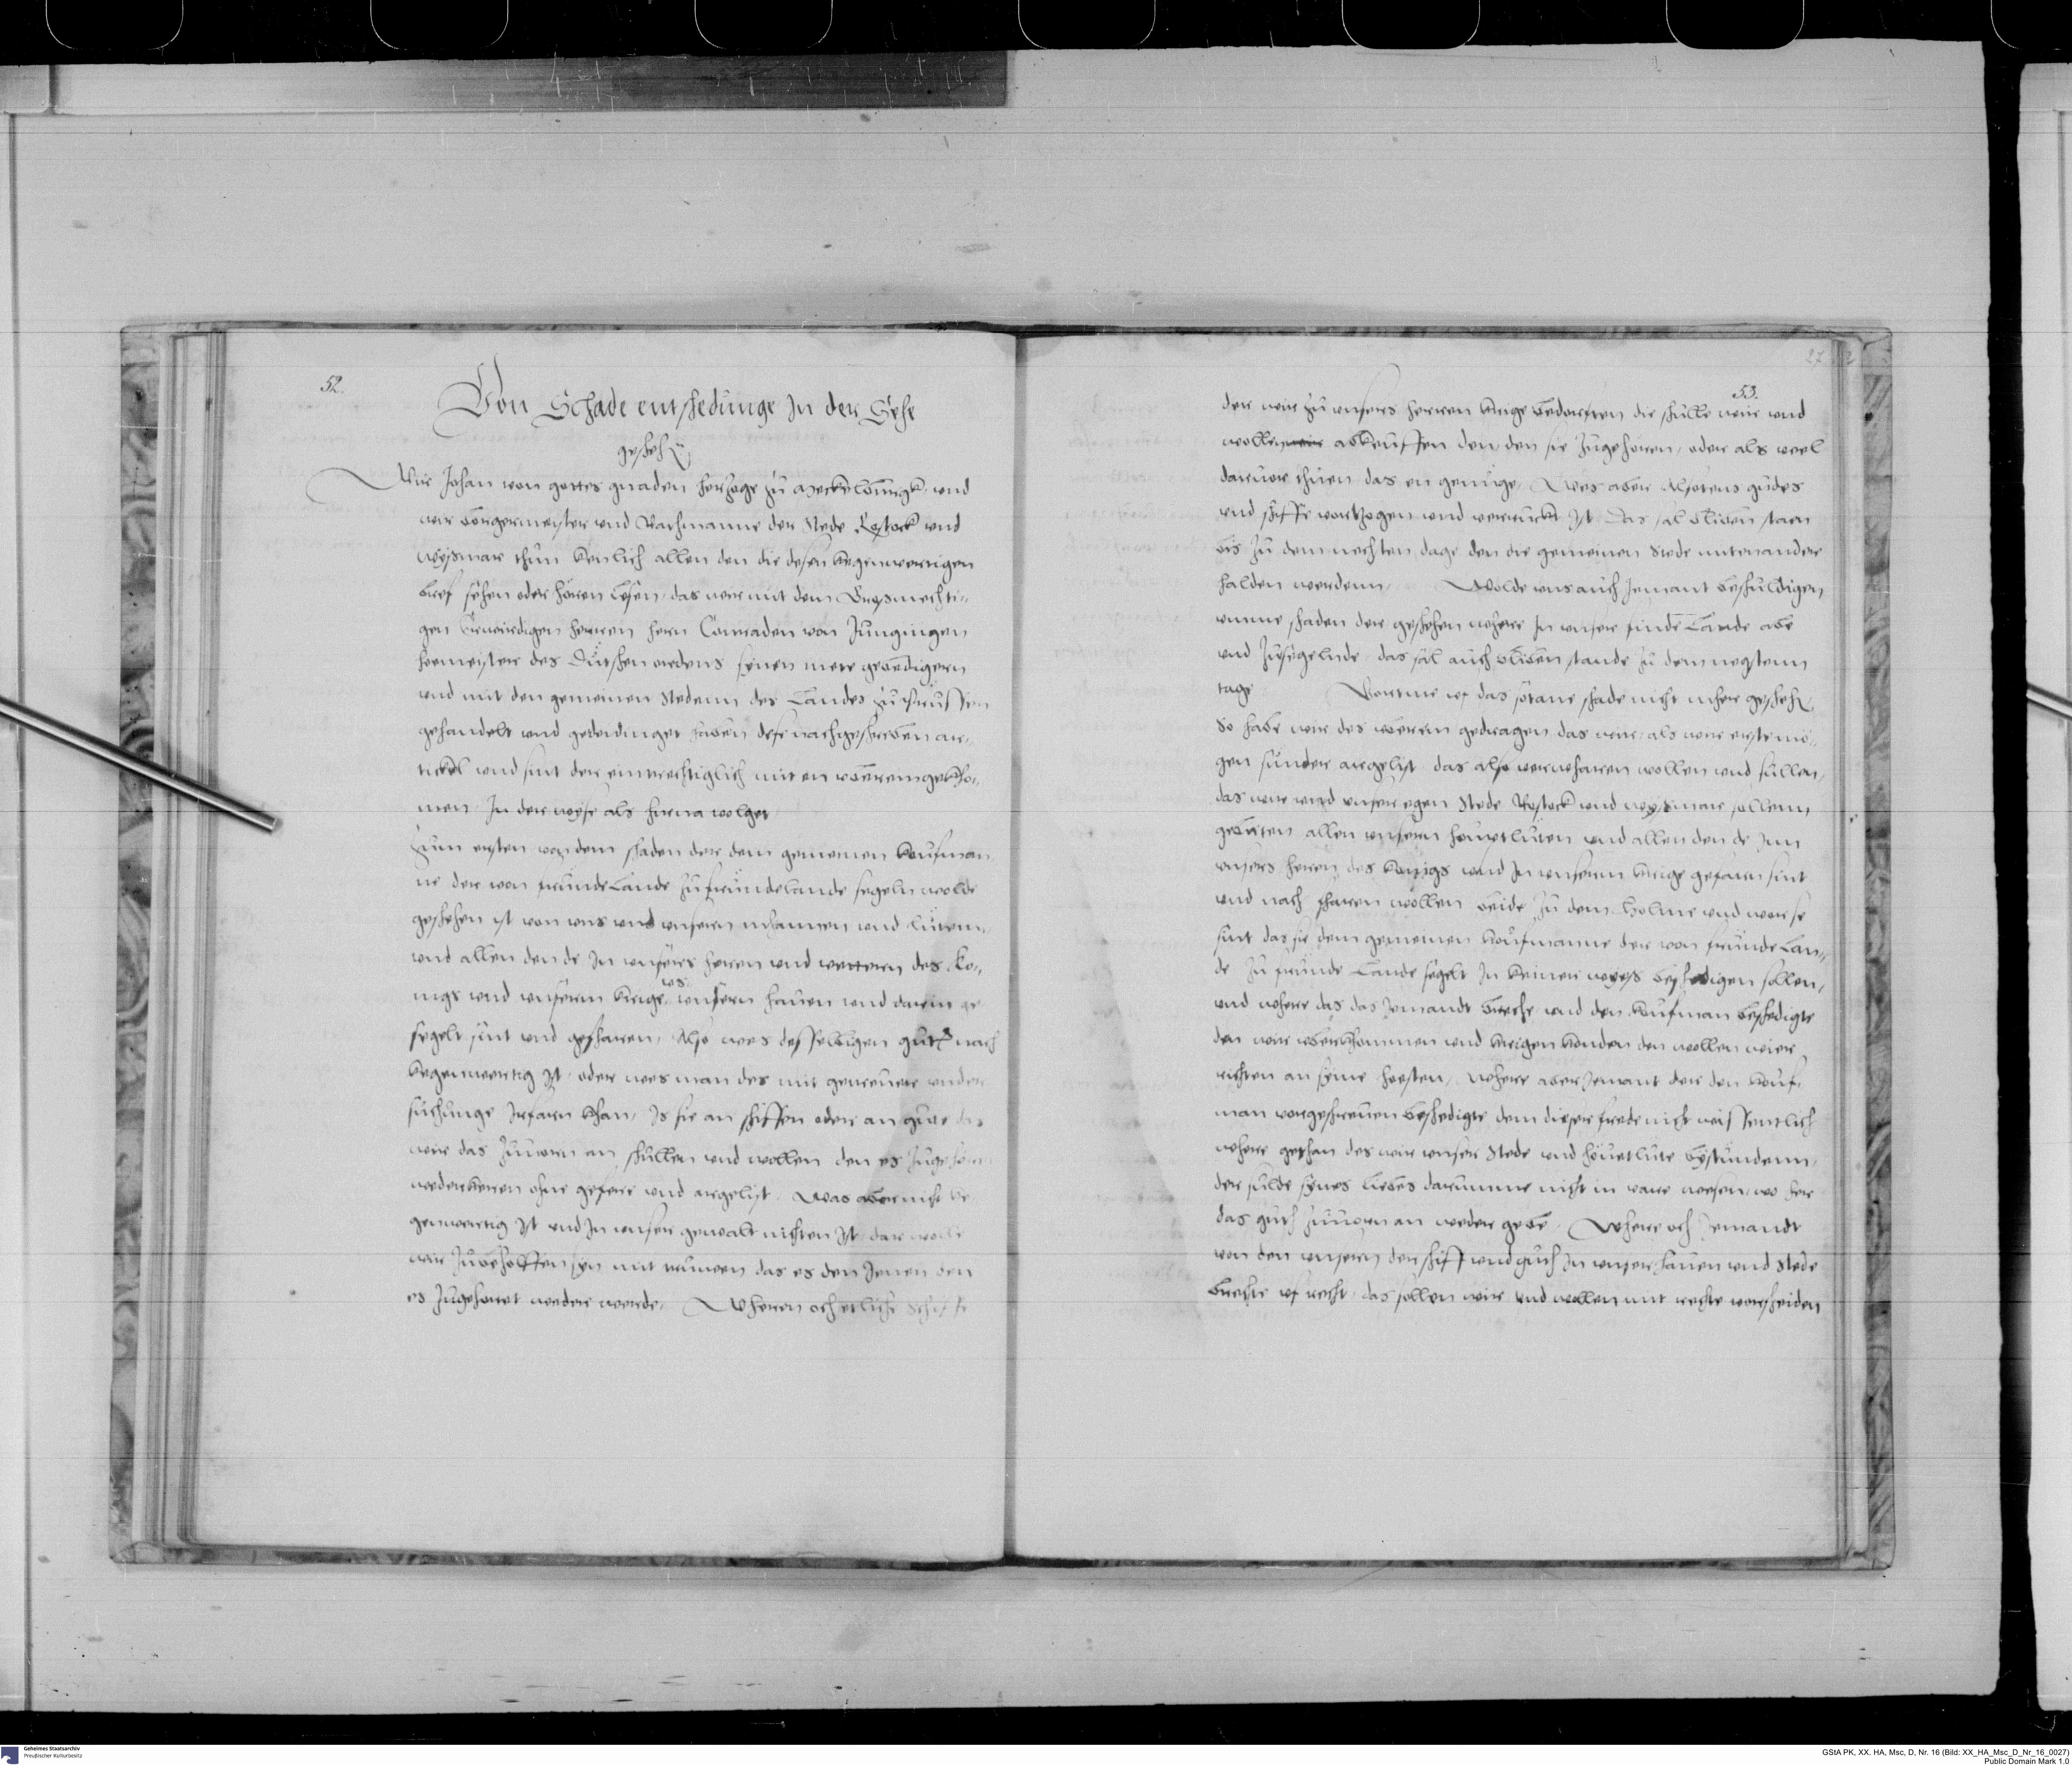 52.
Von Schade entschedunge In der Sehe
geschehen
Wir Johan von gottes gnaden herzoge zu Meckelburgk, und
wir Borgermeister und Rathmanne der Stede Rostock und
Wysmar thun kenlich allen den die desen kegenwertigen
brief sehen oder horen lesen, das wir mit dem Grosmechti-
gen Erwirdigen herren hern Conraden von Jungingen
homeister des Dutschen ordens synen mete gebedigern
und mit den gemeinen Stedenn des Landes zu Preussen
gehandelt und gededinget haben dese nachgeschreben ar-
tickel und sint der eintrechtiglich mit en obereingekho-
men In der wyse als hirna volget
Zum ersten von dem schaden der dem gemeinen koufman
ne der von frunde Lande zu frunde lande segeln wolde
geschehen ist von uns und unseren mhannen und lutenn,
und allen den de In unseres herren und vetteren des Ko-
nigs und unserem krige, us unsern hauen und darein ge
segelt sint und gefharen, Also wes desselbigen guts nach
kegenwertig ist, oder wes man des mit getreuer under
suchunge Irfarn khan, Is sie an schiffen oder an gute das
wir das zuuorn an schullen und wollen den es zugehorn
wederkeren ohne gefere und argelist. Was aber nicht ke
genwertig ist und In unser gewalt nichten ist, dar wolle
wir zubeholffen syn mit truwen das es den Jenen den
es zugehoret weder werde. Wheren och etliche Schiffe
53.
27
der wir zu unseres herren krige bedorften die schulle wir und
wollen abkeuffen den, den sie zugehoren, oder als veel
daruor thuen das en genuge, Wes aber Alsotens gudes
und schiffe vortzogen und verruckt ist Das sal bliben staen
bis zu dem nechten dage den die gemeinen Stede mitenandere
halden werdenn, Wolde uns auch Jemant beschuldigen
umme schaden der geschehen where In unser finde Lande abe
und zusegelnde, das sal auch bliben stande zu dem negstenn
tage Vortme uf das sotane schade nicht mher geschehe
So habe wir des oberein gedragen das wir, als wir erste mo-
gen sunder argelist das also verwharen wollen und sullen,
das wir und unser egen Stede Rostock und Wysmar sollenn
gebieten allen unsern houetluten und allen den de Inn
unsers herren des konigs und In unserm krige gefaren sint
und nach pharen wollen beide zu dem Holme und wor se
sint das sie dem gemeinen koufmanne der von frunde Lan-
de zu frunde Lande segelt In keiner weys beschedigen sollen,
und where das das Jemandt breche und den koufman beschedigte
den wir uberkhommen und krigen konden den wollen wier
richten an syme hoesten, Where aber Jemant der den kouf-
man vorgeschreuen beschedigte dem dieser frede nicht wissentlich
where gethan des wir unser Stede und houetlute bystundenn,
der sulde synes liebes darumme nicht in vare wesen, wo here
das guth zuuorn an weder gebe. Where och Jemandt
von den unseren der schiff und guth In unser hauen und Stede
brechte uf recht, das sollen wir und wollen mit rechte vorscheiden
Geheimes Staatsarchiv
Preußischer Kulturbesitz
GStA PK, XX. HA, Msc, D, Nr. 16 (Bild: XX_HA_Msc_D_Nr_16_0027)
Public Domain Mark 1.0